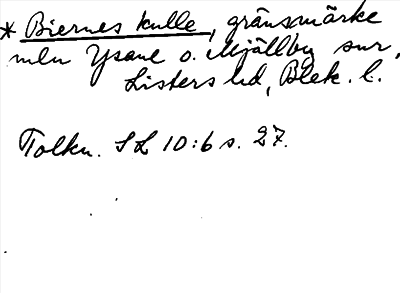 * Biernes kulle, gränsmärke
mln Ysane o. Mjällby snr,
Listers hd, Blek. l.
Tolkn. SL 10:6 s. 27.